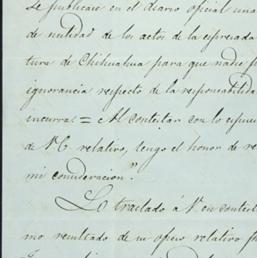 Se publicara en el diario oficial una
de nulidad de los actos de la espresada
tura de Chihuahua para que nadie
ignorancia respecto de la responsabilidad
incurra = Al contestar con lo espues
de V.E. relativo, tengo el honor de re
mi consideracion".
Lo traslado á V. en contest
mo resultado de su oficio relativo